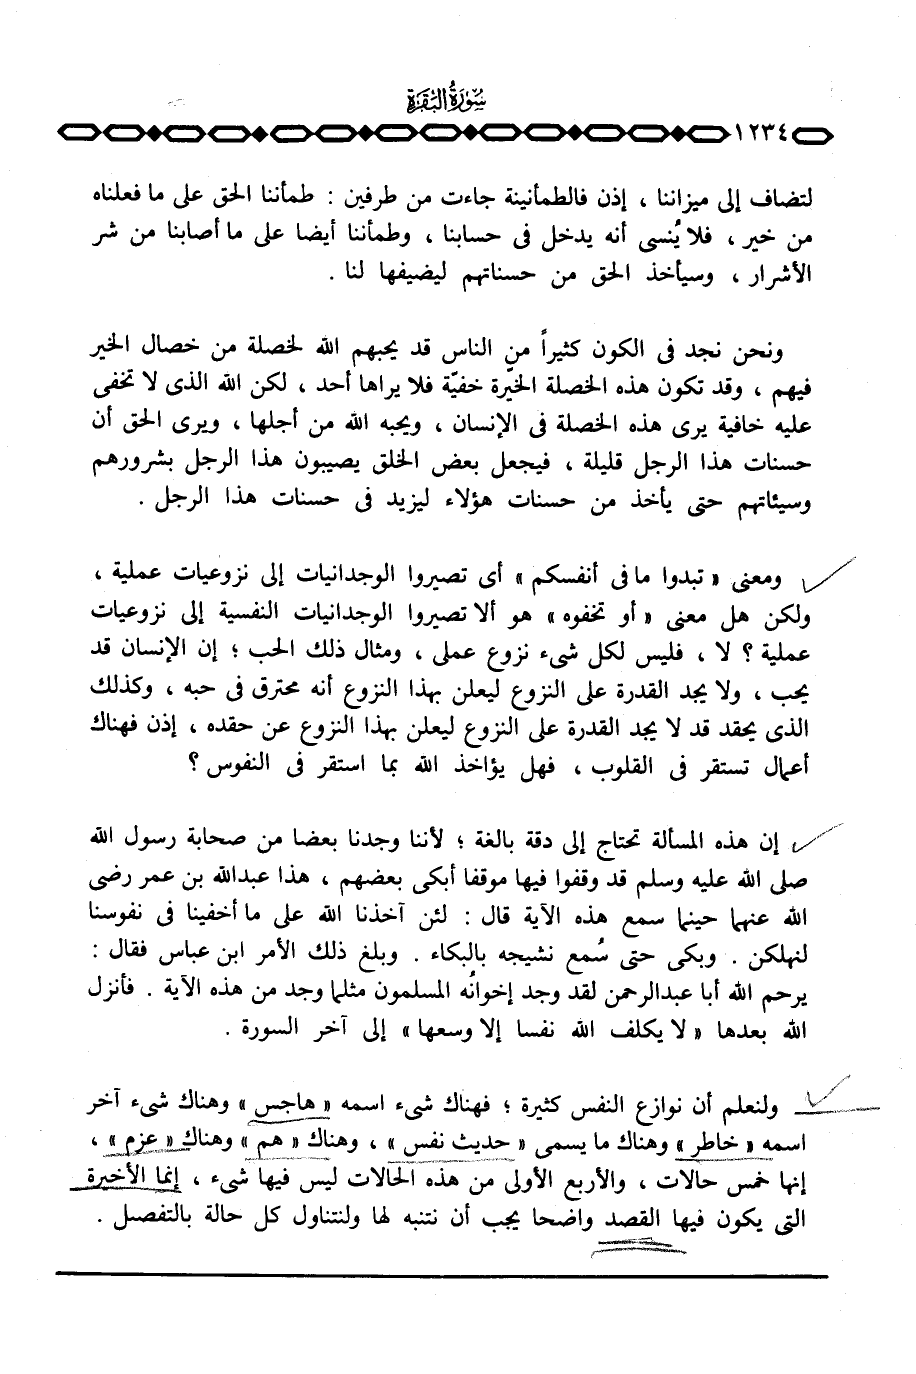 سُورَةُ البَقَرَةِ
١٢٣٤
لتضاف إلى ميزاننا ، إذن فالطمأنينة جاءت من طرفين : طمأننا الحق على ما فعلناه
من خير ، فلا يُنسى أنه يدخل فى حسابنا ، وطمأننا أيضا على ما أصابنا من شر
الأشرار ، وسيأخذ الحق من حسناتهم ليضيفها لنا .
ونحن نجد فى الكون كثيراً من الناس قد يحبهم الله لخصلة من خصال الخير
فيهم ، وقد تكون هذه الخصلة الخيرة خفيّة فلا يراها أحد ، لكن الله الذى لا تخفى
عليه خافية يرى هذه الخصلة فى الإنسان ، ويحبه الله من أجلها ، ويرى الحق أن
حسنات هذا الرجل قليلة ، فيجعل بعض الخلق يصيبون هذا الرجل بشرورهم
وسيئاتهم حتى يأخذ من حسنات هؤلاء ليزيد فى حسنات هذا الرجل .
ومعنى « تبدوا ما فى أنفسكم » أى تصيروا الوجدانيات إلى نزوعيات عملية ،
ولكن هل معنى « أو تخفوه » هو ألا تصيروا الوجدانيات النفسية إلى نزوعيات
عملية ؟ لا ، فليس لكل شىء نزوع عملى ، ومثال ذلك الحب ؛ إن الإنسان قد
يحب ، ولا يجد القدرة على النزوع ليعلن بهذا النزوع أنه محترق فى حبه ، وكذلك
الذى يحقد قد لا يجد القدرة على النزوع ليعلن بهذا النزوع عن حقده ، إذن فهناك
أعمال تستقر فى القلوب ، فهل يؤاخذ الله بما استقر فى النفوس ؟
إن هذه المسألة تحتاج إلى دقة بالغة ؛ لأننا وجدنا بعضا من صحابة رسول الله
صلى الله عليه وسلم قد وقفوا فيها موقفا أبكى بعضهم ، هذا عبدالله بن عمر رضى
الله عنهما حينما سمع هذه الآية قال : لئن آخذنا الله على ما أخفينا فى نفوسنا
لنهلكن . وبكى حتى سُمع نشيجه بالبكاء . وبلغ ذلك الأمر ابن عباس فقال :
يرحم الله أبا عبدالرحمن لقد وجد إخوانُه المسلمون مثلما وجد من هذه الآية . فأنزل
الله بعدها « لا يكلف الله نفسا إلا وسعها » إلى آخر السورة .
ولنعلم أن نوازع النفس كثيرة ؛ فهناك شىء اسمه « هاجس » وهناك شىء آخر
اسمه « خاطر » وهناك ما يسمى « حديث نفس » ، وهناك « هم » وهناك « عزم » ،
إنها خمس حالات ، والأربع الأولى من هذه الحالات ليس فيها شىء ، إنما الأخيرة
التى يكون فيها القصد واضحا يجب أن نتنبه لها ولنتناول كل حالة بالتفصيل .